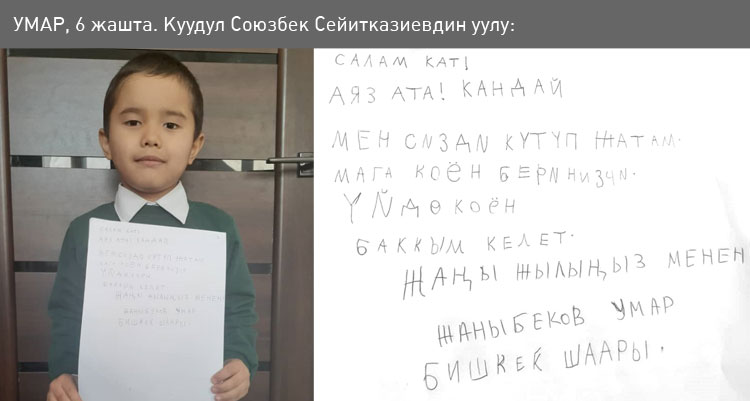 УМАР, 6 жашта. Куудул Союзбек Сейитказиевдин уулу:
САЛАМ КАТ!
АЯЗ АТА! КАНДАЙ
МЕН СИЗДИ КҮТҮП ЖАТАМ.
МАГА КОЁН БЕРИНИЗЧИ.
ҮЙДӨ КОЁН
БАККЫМ КЕЛЕТ.
ЖАҢЫ ЖЫЛЫҢЫЗ МЕНЕН
ЖАНЫБЕКОВ УМАР
БИШКЕК ШААРЫ.